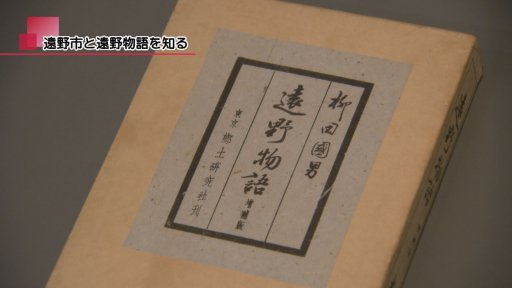 遠野市と遠野物語を知る
柳田國男
遠野物語 増補版
東京 郷土研究社刊